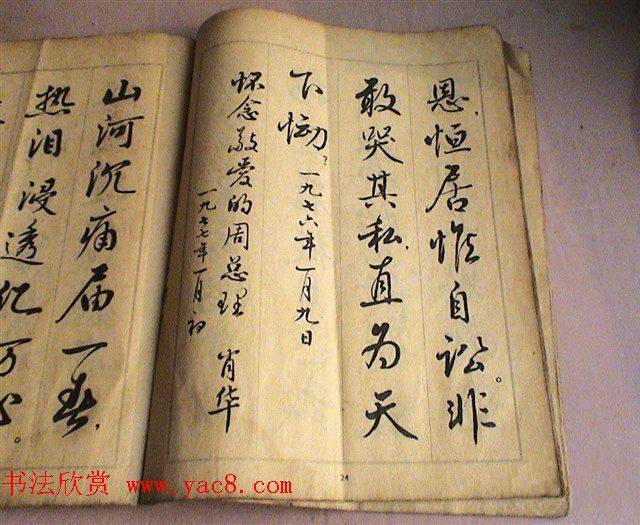 恩,恒居惟自讼。非
敢哭其私,直为天
下恸?一九七六年一月九日
怀念敬爱的周总理 肖华
一九七七年一月初
山河沉痛届一春,
热泪浸透亿万心。
24
书法欣赏 www.yac8.com